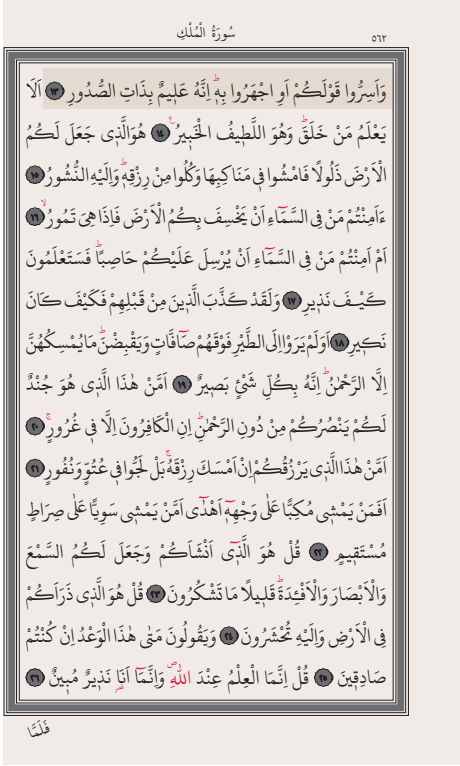 سُورَةُ الْمُلْكِ ٥٦٢
وَاَسِرُّوا قَوْلَكُمْ اَوِ اجْهَرُوا بِهٖۜ اِنَّهُ عَلٖيمٌ بِذَاتِ الصُّدُورِ ١٣ اَلَا
يَعْلَمُ مَنْ خَلَقَۜ وَهُوَ اللَّطٖيفُ الْخَبٖيرُ ١٤ هُوَالَّذٖى جَعَلَ لَكُمُ
الْاَرْضَ ذَلُولًا فَامْشُوا فٖى مَنَاكِبِهَا وَكُلُوا مِنْ رِزْقِهٖۜ وَاِلَيْهِ النُّشُورُ ١٥
ءَاَمِنْتُمْ مَنْ فِى السَّمَٓاءِ اَنْ يَخْسِفَ بِكُمُ الْاَرْضَ فَاِذَا هِىَ تَمُورُ ١٦
اَمْ اَمِنْتُمْ مَنْ فِى السَّمَٓاءِ اَنْ يُرْسِلَ عَلَيْكُمْ حَاصِبًاۜ فَسَتَعْلَمُونَ
كَيْفَ نَذٖيرِ ١٧ وَلَقَدْ كَذَّبَ الَّذٖينَ مِنْ قَبْلِهِمْ فَكَيْفَ كَانَ
نَكٖيرِ ١٨ اَوَلَمْ يَرَوْا اِلَى الطَّيْرِ فَوْقَهُمْ صَٓافَّاتٍ وَيَقْبِضْنَۜ مَا يُمْسِكُهُنَّ
اِلَّا الرَّحْمٰنُۜ اِنَّهُ بِكُلِّ شَیْءٍ بَصٖيرٌ ١٩ اَمَّنْ هٰذَا الَّذٖى هُوَ جُنْدٌ
لَكُمْ يَنْصُرُكُمْ مِنْ دُونِ الرَّحْمٰنِۜ اِنِ الْكَافِرُونَ اِلَّا فٖى غُرُورٍۚ ٢٠
اَمَّنْ هٰذَا الَّذٖى يَرْزُقُكُمْ اِنْ اَمْسَكَ رِزْقَهُۚ بَلْ لَجُّوا فٖى عُتُوٍّ وَنُفُورٍ ٢١
اَفَمَنْ يَمْشٖى مُكِبًّا عَلٰى وَجْهِهٖٓ اَهْدٰٓى اَمَّنْ يَمْشٖى سَوِيًّا عَلٰى صِرَاطٍ
مُسْتَقٖيمٍ ٢٢ قُلْ هُوَ الَّذٖٓى اَنْشَاَكُمْ وَجَعَلَ لَكُمُ السَّمْعَ
وَالْاَبْصَارَ وَالْاَفْئِدَةَۜ قَلٖيلًا مَا تَشْكُرُونَ ٢٣ قُلْ هُوَ الَّذٖى ذَرَاَكُمْ
فِى الْاَرْضِ وَاِلَيْهِ تُحْشَرُونَ ٢٤ وَيَقُولُونَ مَتٰى هٰذَا الْوَعْدُ اِنْ كُنْتُمْ
صَادِقٖينَ ٢٥ قُلْ اِنَّمَا الْعِلْمُ عِنْدَ اللّٰهِۖ وَاِنَّمَٓا اَنَا۬ نَذٖيرٌ مُبٖينٌ ٢٦
فَلَمَّا